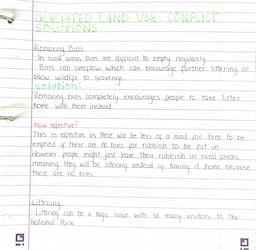 GLACIATED LAND USE CONFLICT
SOLUTIONS
Removing Bins
· In rural areas bins are difficult to empty regularly
· Bins can overflow which can encourage further littering or
allow wildlife to scavenge.
Solution:
Removing bins completely encourages people to take litter
home with them instead.
how effective?
This is effective as there will be less of a need for bins to be
emptied if there are no bins for rubbish to be put in.
However people might just leave their rubbish in rural areas
meaning they will be littering instead of taking it home because
there are no bins.
Littering
· Littering can be a huge issue with so many visitors to the
National Park.